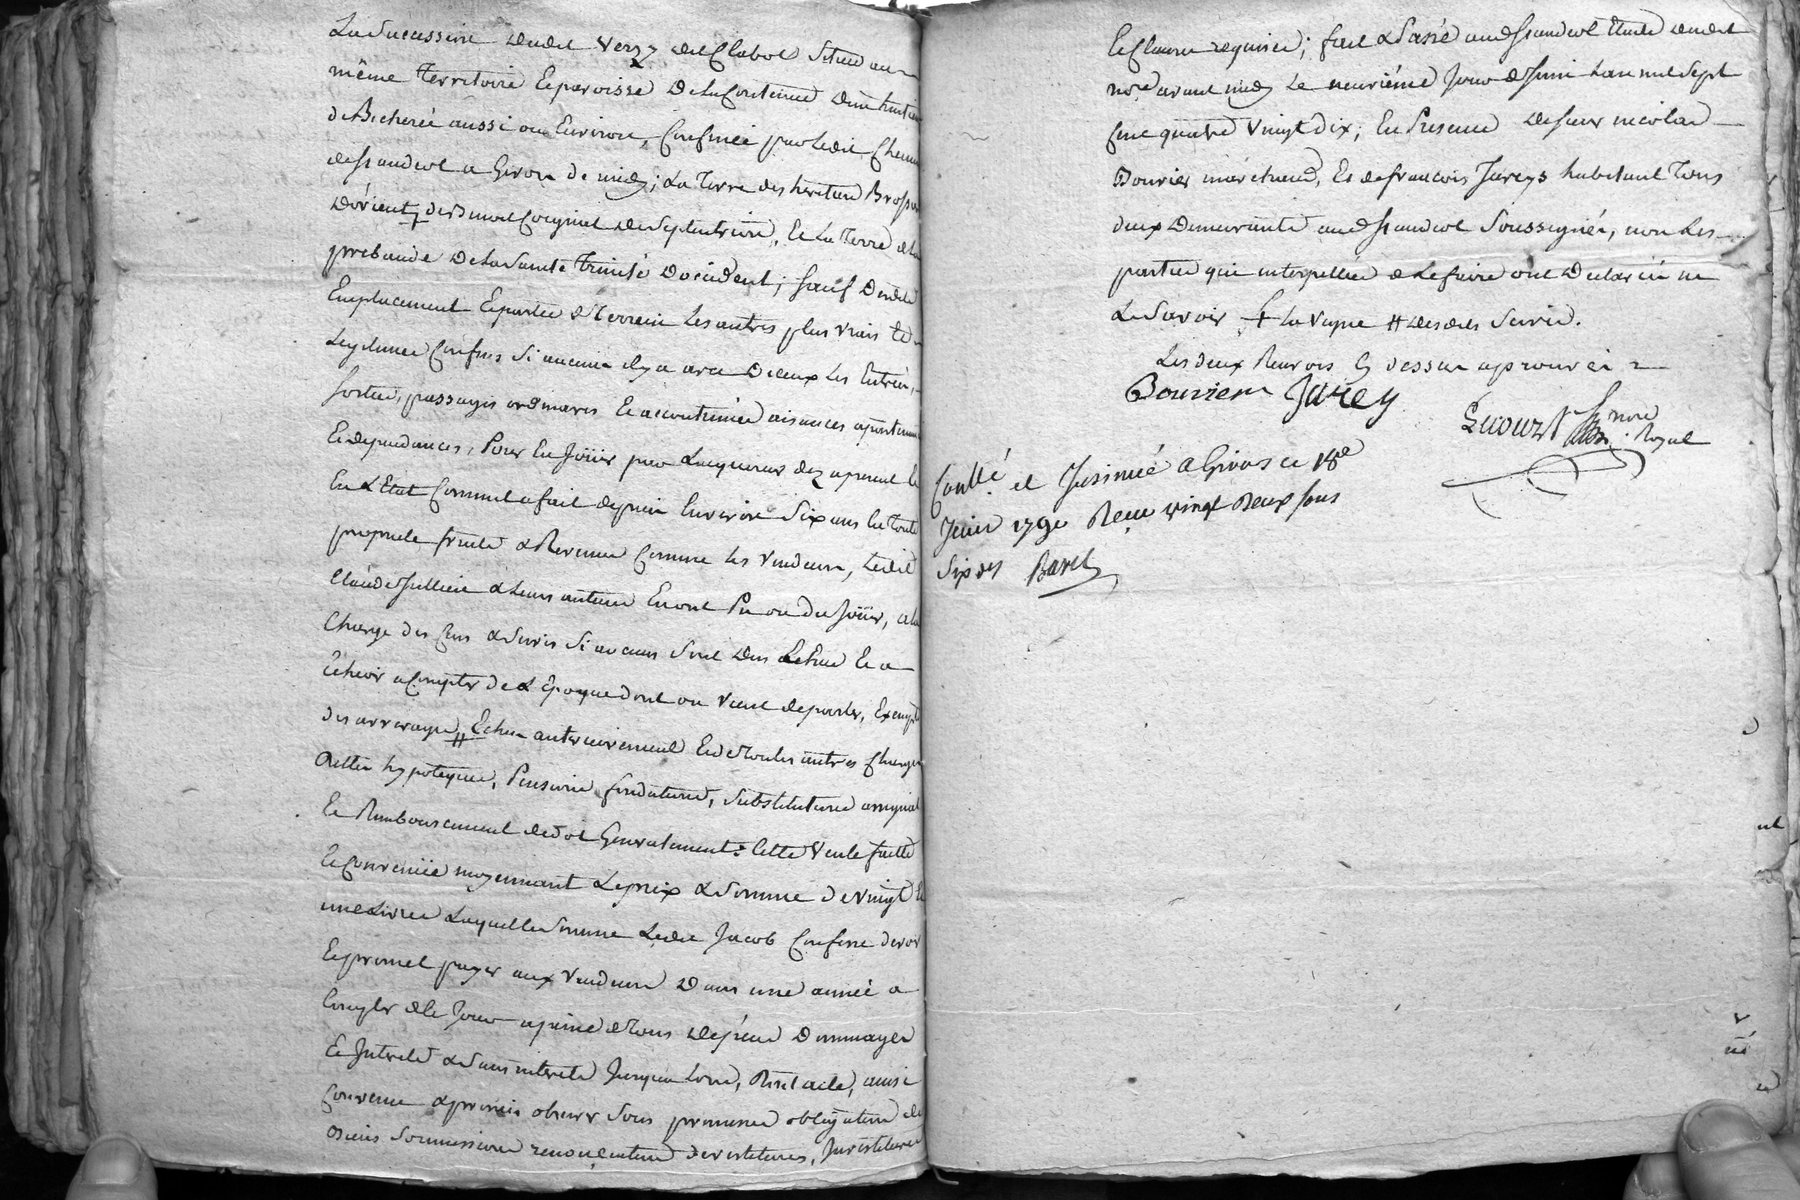 La Succession dudit Verzy dit Clabot Située au
même territoire & paroisse de la Contenue d'un huit
de Bicherée aussi ou Environ, Confinée par ledit Chemin
de St andeol a Givors de midy; La terre des heritiers Brossy
D'orient, de Septentrion, & La Terre de la
prebande de la Sainte trinité d'occident; Sauf desdits
Emplacement & partie de Terrein Les autres plus vrais &
Legitimes Confins Si aucuns il y a avec iceux Les Entrées,
Sorties, passages ordinaires & accoutumées aisances apartenances
& dependances, Pour En Joüir par L'acquereur dez apresent
En L'Etat Comme il a fait depuis Environ Six ans En toute
propriete fruits & Revenus Comme Les Vendeurs, Ledit
Claude Jullien & Leurs auteurs En ont Pu ou du Joüir, a la
Charge des Cens & Servis Si aucuns Sont Dus Echus & a
Echeoir a Compter de L'Epoque dont on vient de parler, Exempt
des arrerages # Echus anterieurement & de toutes autres Charges
dettes hypoteques, Pensions fondations, Substitutions
& Remboursement de dot Generalement: Cette Vente faitte
& Convenüe moyennant Le prix & Somme de Vingt &
une Livres Laquelle Somme Ledit Jacob Confesse devoir
& promet payer aux Vendeurs Dans une année a
Compter de Ce Jour a peine de tous Depens Dommages
& Interets & Sans interets Jusqu'a Lors, Dont acte, ainsi
Convenu & promis observer Sous promesses obligations de
biens Soumissions renonciations devestitures, Investitures
& Clauses requises; fait & Passé aud St andeol Etude dudit
nore avant midy Le neuvième Jour de Juin L'an mil Sept
Cent quatre Vingt dix; En Presence de Sieur nicolas
Bourier maréchal, Et de francois Jareys habitant tous
deux Demeurants aud St andeol Soussignés, non Les
parties qui interpellées de Le faire ont Declaré ne
Le Savoir + La Vaque # desdits Servis.
Les deux Renvois Cy dessus aprouvés
Bourrier Jarey
nore Royal
Contlé et Insinué a Givors ce 18e
Juin 1790 Reçu vingt Deux sous
Six drs Baret